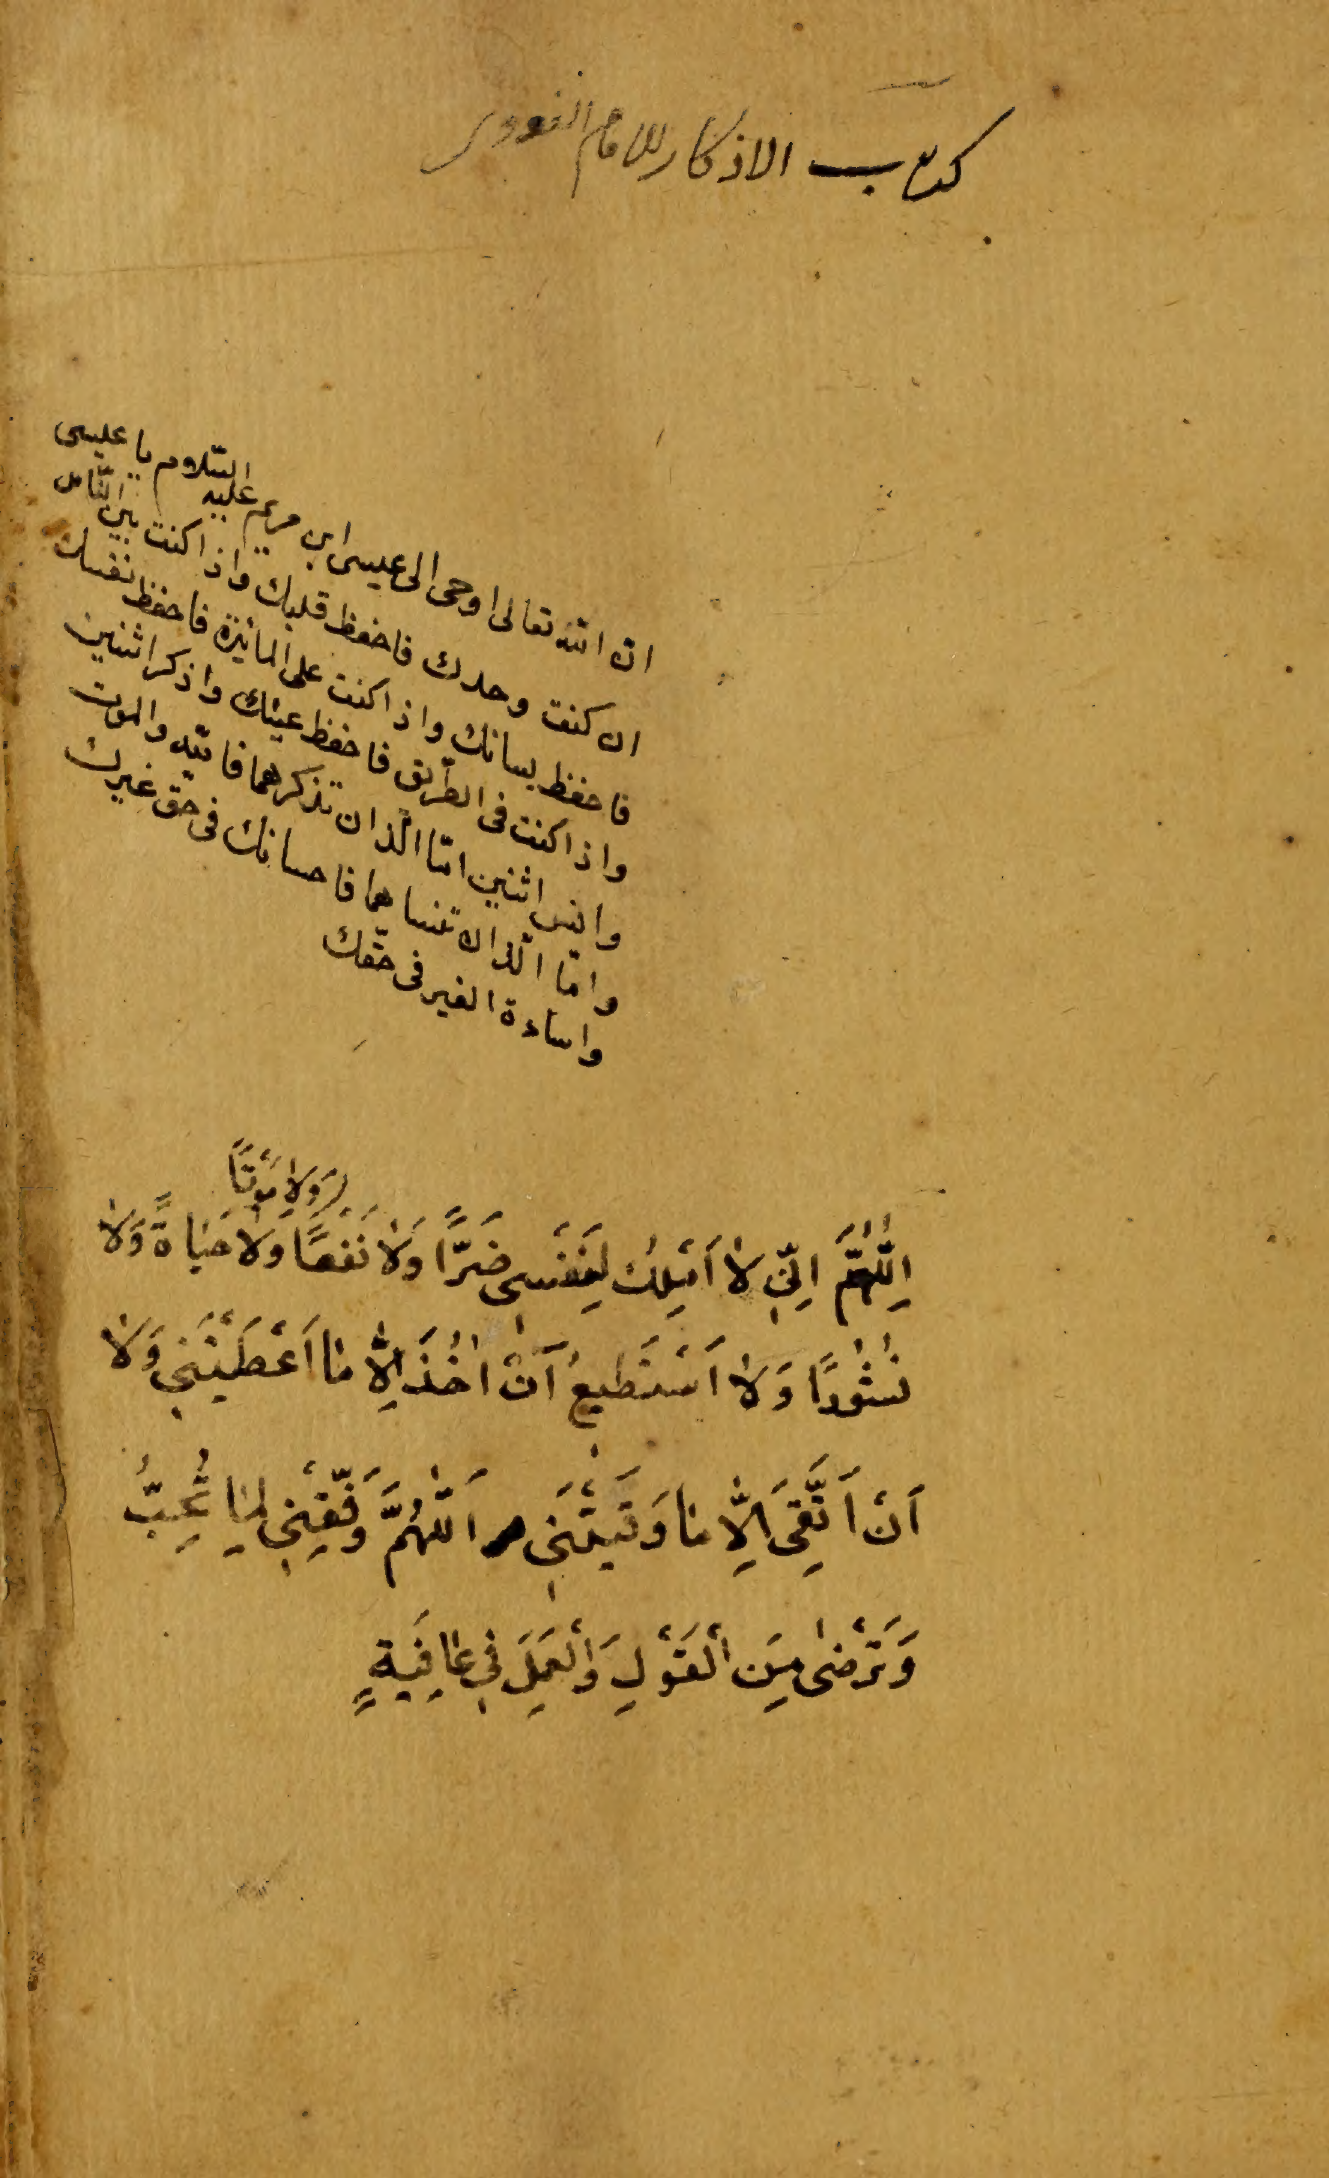 كتاب الاذكار للامام النووى
ان الله تعالى اوحى الى عيسى ابن مريم عليه السّلام يا عيسى
ان كنت وحدك فاحفظ قلبك واذا كنت بين النّاس
فاحفظ لسانك واذا كنت على المائدة فاحفظ نفسك
واذا كنت فى الطّريق فاحفظ عينك واذكر اثنين
وانس اثنين امّا الّذان تذكرهما فالله والموت
وامّا الّذان تنساهما فاحسانك فى حقّ غيرك
واساءة الغير فى حقّك
وَلَا مَوْتًا
اَللّٰهُمَّ اِنِّي لَا اَمْلِكُ لِنَفْسِى ضَرًّا وَلَا نَفْعًا وَلَا حَيَاةً وَلَا
نُشُورًا وَلَا اَسْتَطِيعُ اَنْ اٰخُذَ اِلَّا مَا اَعْطَيْتَنِي وَلَا
اَنْ اَتَّقِىَ اِلَّا مَا وَقَيْتَنِى اَللّٰهُمَّ وَفِّقْنِي لِمَا تُحِبُّ
وَتَرْضٰى مِنَ الْقَوْلِ وَالْعَمَلِ فِي عَافِيَةٍ